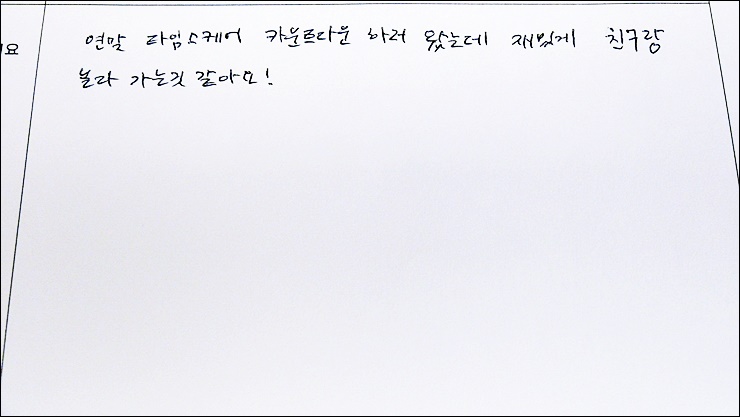 연말 타임스퀘어 카운트다운 하러 왔는데 재밌게 친구랑
요
놀다 가는것 같아요!